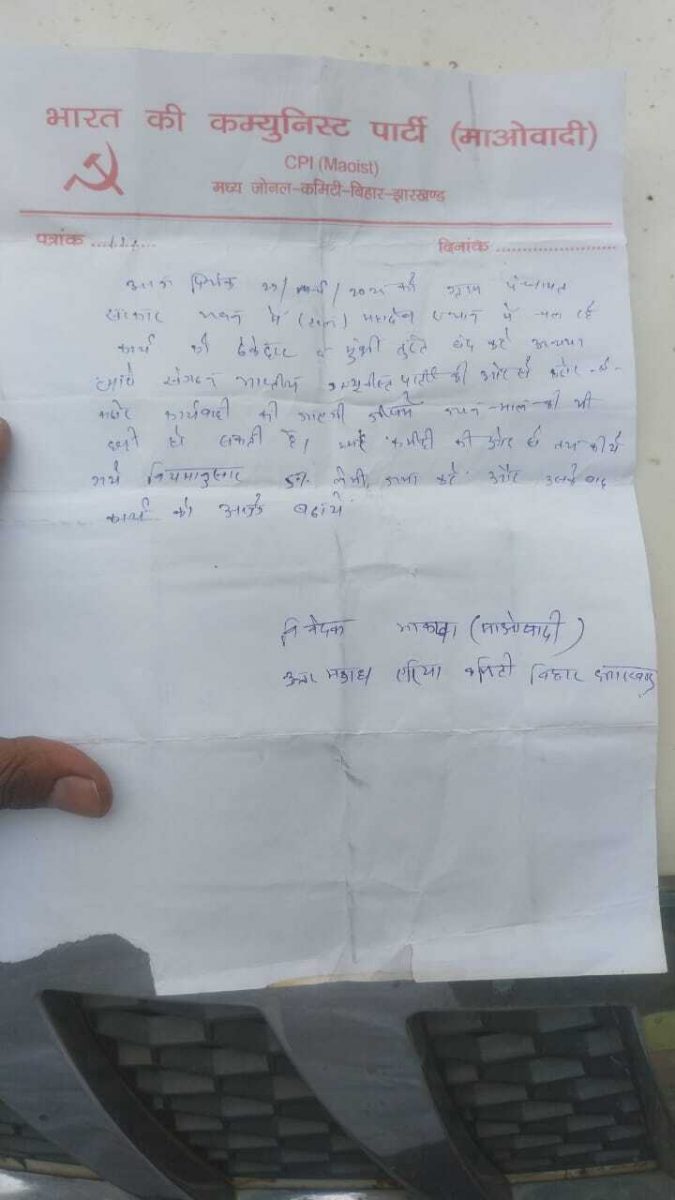 भारत की कम्युनिस्ट पार्टी (माओवादी)
CPI (Maoist)
मध्य जोनल-कमिटी-बिहार-झारखण्ड
पत्रांक ............
दिनांक ........................
आज दिनांक 22/मार्च/2025 को ग्राम पंचायत
सरकार भवन में महादेव स्थान में चल रहे
कार्य को ठेकेदार व मुंशी तुरंत बंद करे अन्यथा
हमारे संगठन भारतीय कम्युनिस्ट पार्टी की ओर से कठोर-से-
कठोर कार्यवाही की जाएगी जिसमें जान-माल की भी
हो सकती है। कमिटी की ओर से तय कीये
गये नियमानुसार 5% लेभी जमा करे और उसके बाद
कार्य को आगे बढाये
निवेदक भाकपा (माओवादी)
मगध एरिया कमिटी बिहार झारखण्ड